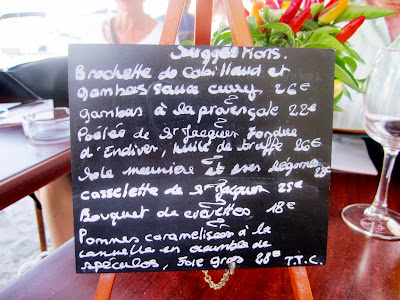 Suggestions.
Brochette de Cabillaud et
gambas sauce curry. 26€
Gambas à la provençale 22€
Poêlée de St Jacques Fondue
d'Endives, huile de truffe 26€
Sole meunière et ses légumes
Casselette de St Jacques 25€
Bouquet de crevettes 18€
Pommes caramelisées à la
cannelle en crumble de
spéculos, Foie gras 28€ T.T.C.